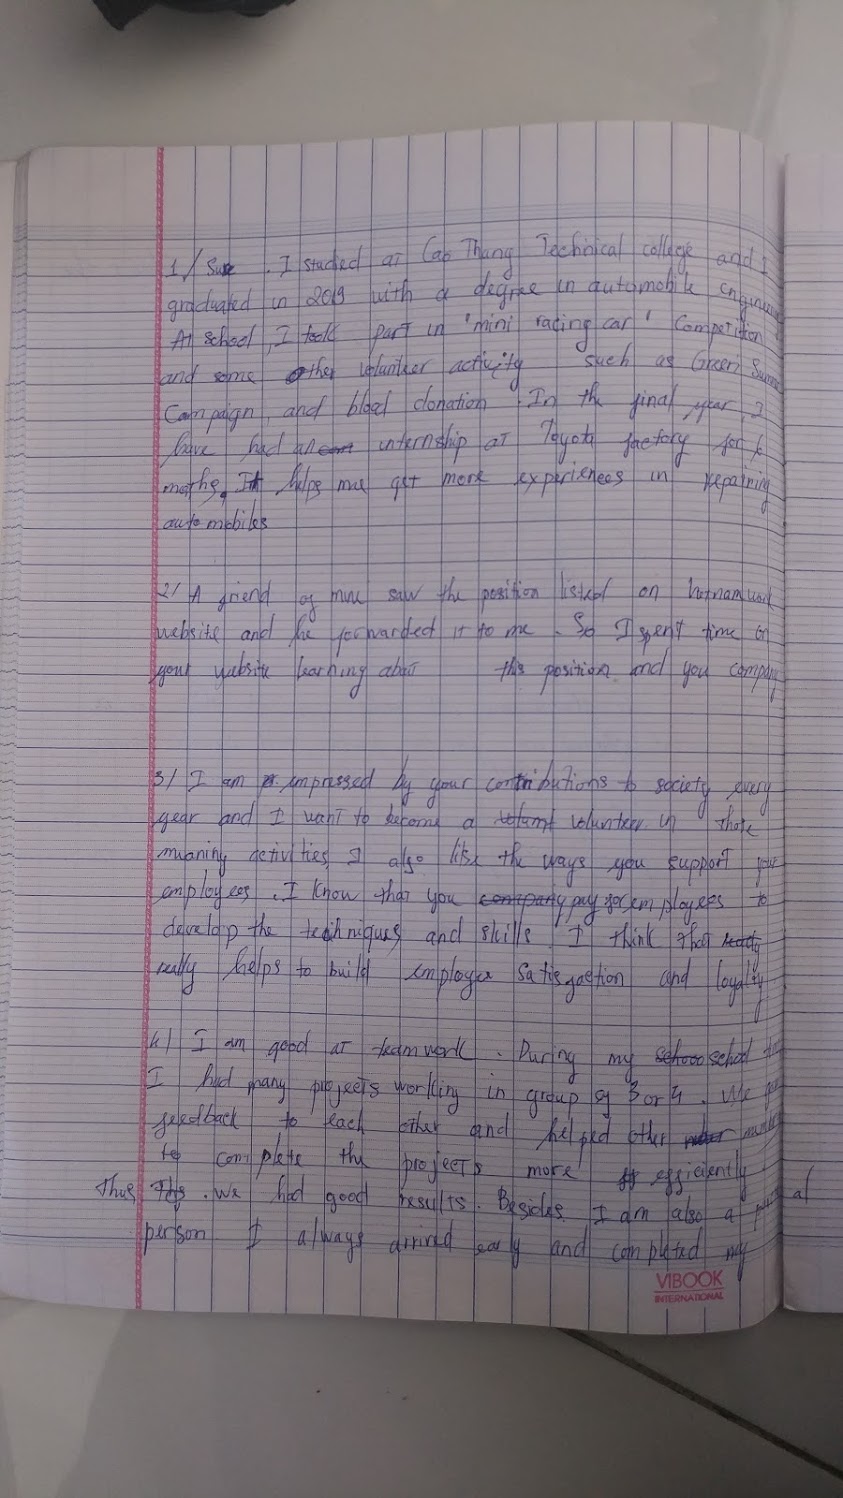 1/ Sure . I studied at Cao Thang Technical college and I
graduated in 2019 with a degree in automobile engineering
At school, I took part in 'mini racing car' Competition
and some other volunteer activity such as Green Summer
Campaign, and blood donation. In the final year, I
have had an internship at Toyota factory for 6
moths. It helps me get more experiences in repairing
automobiles
2/ A friend of mine saw the position listed on Vietnamwork
website and he forwarded it to me. So I spent time on
your website learning about this position and you company
3/ I am impressed by your contributions to society every
year and I want to become a volunteer in those
meaning activities, I also like the ways you support your
employees. I know that you pay for employees to
develop the techniques and skills. I think that
really helps to build employee satisfaction and loyalty
4/ I am good at teamwork. During my school time
I had many projects working in group of 3 or 4. We
feedback to each other and helped other
to complete the projects more efficiently
Thus . We had good results. Besides, I am also a
person I always arrived early and completed my
VIBOOK
INTERNATIONAL